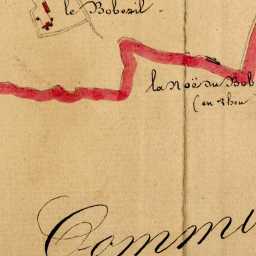 le Bobesil.
la Noë du Bob
(en Thou
Commu